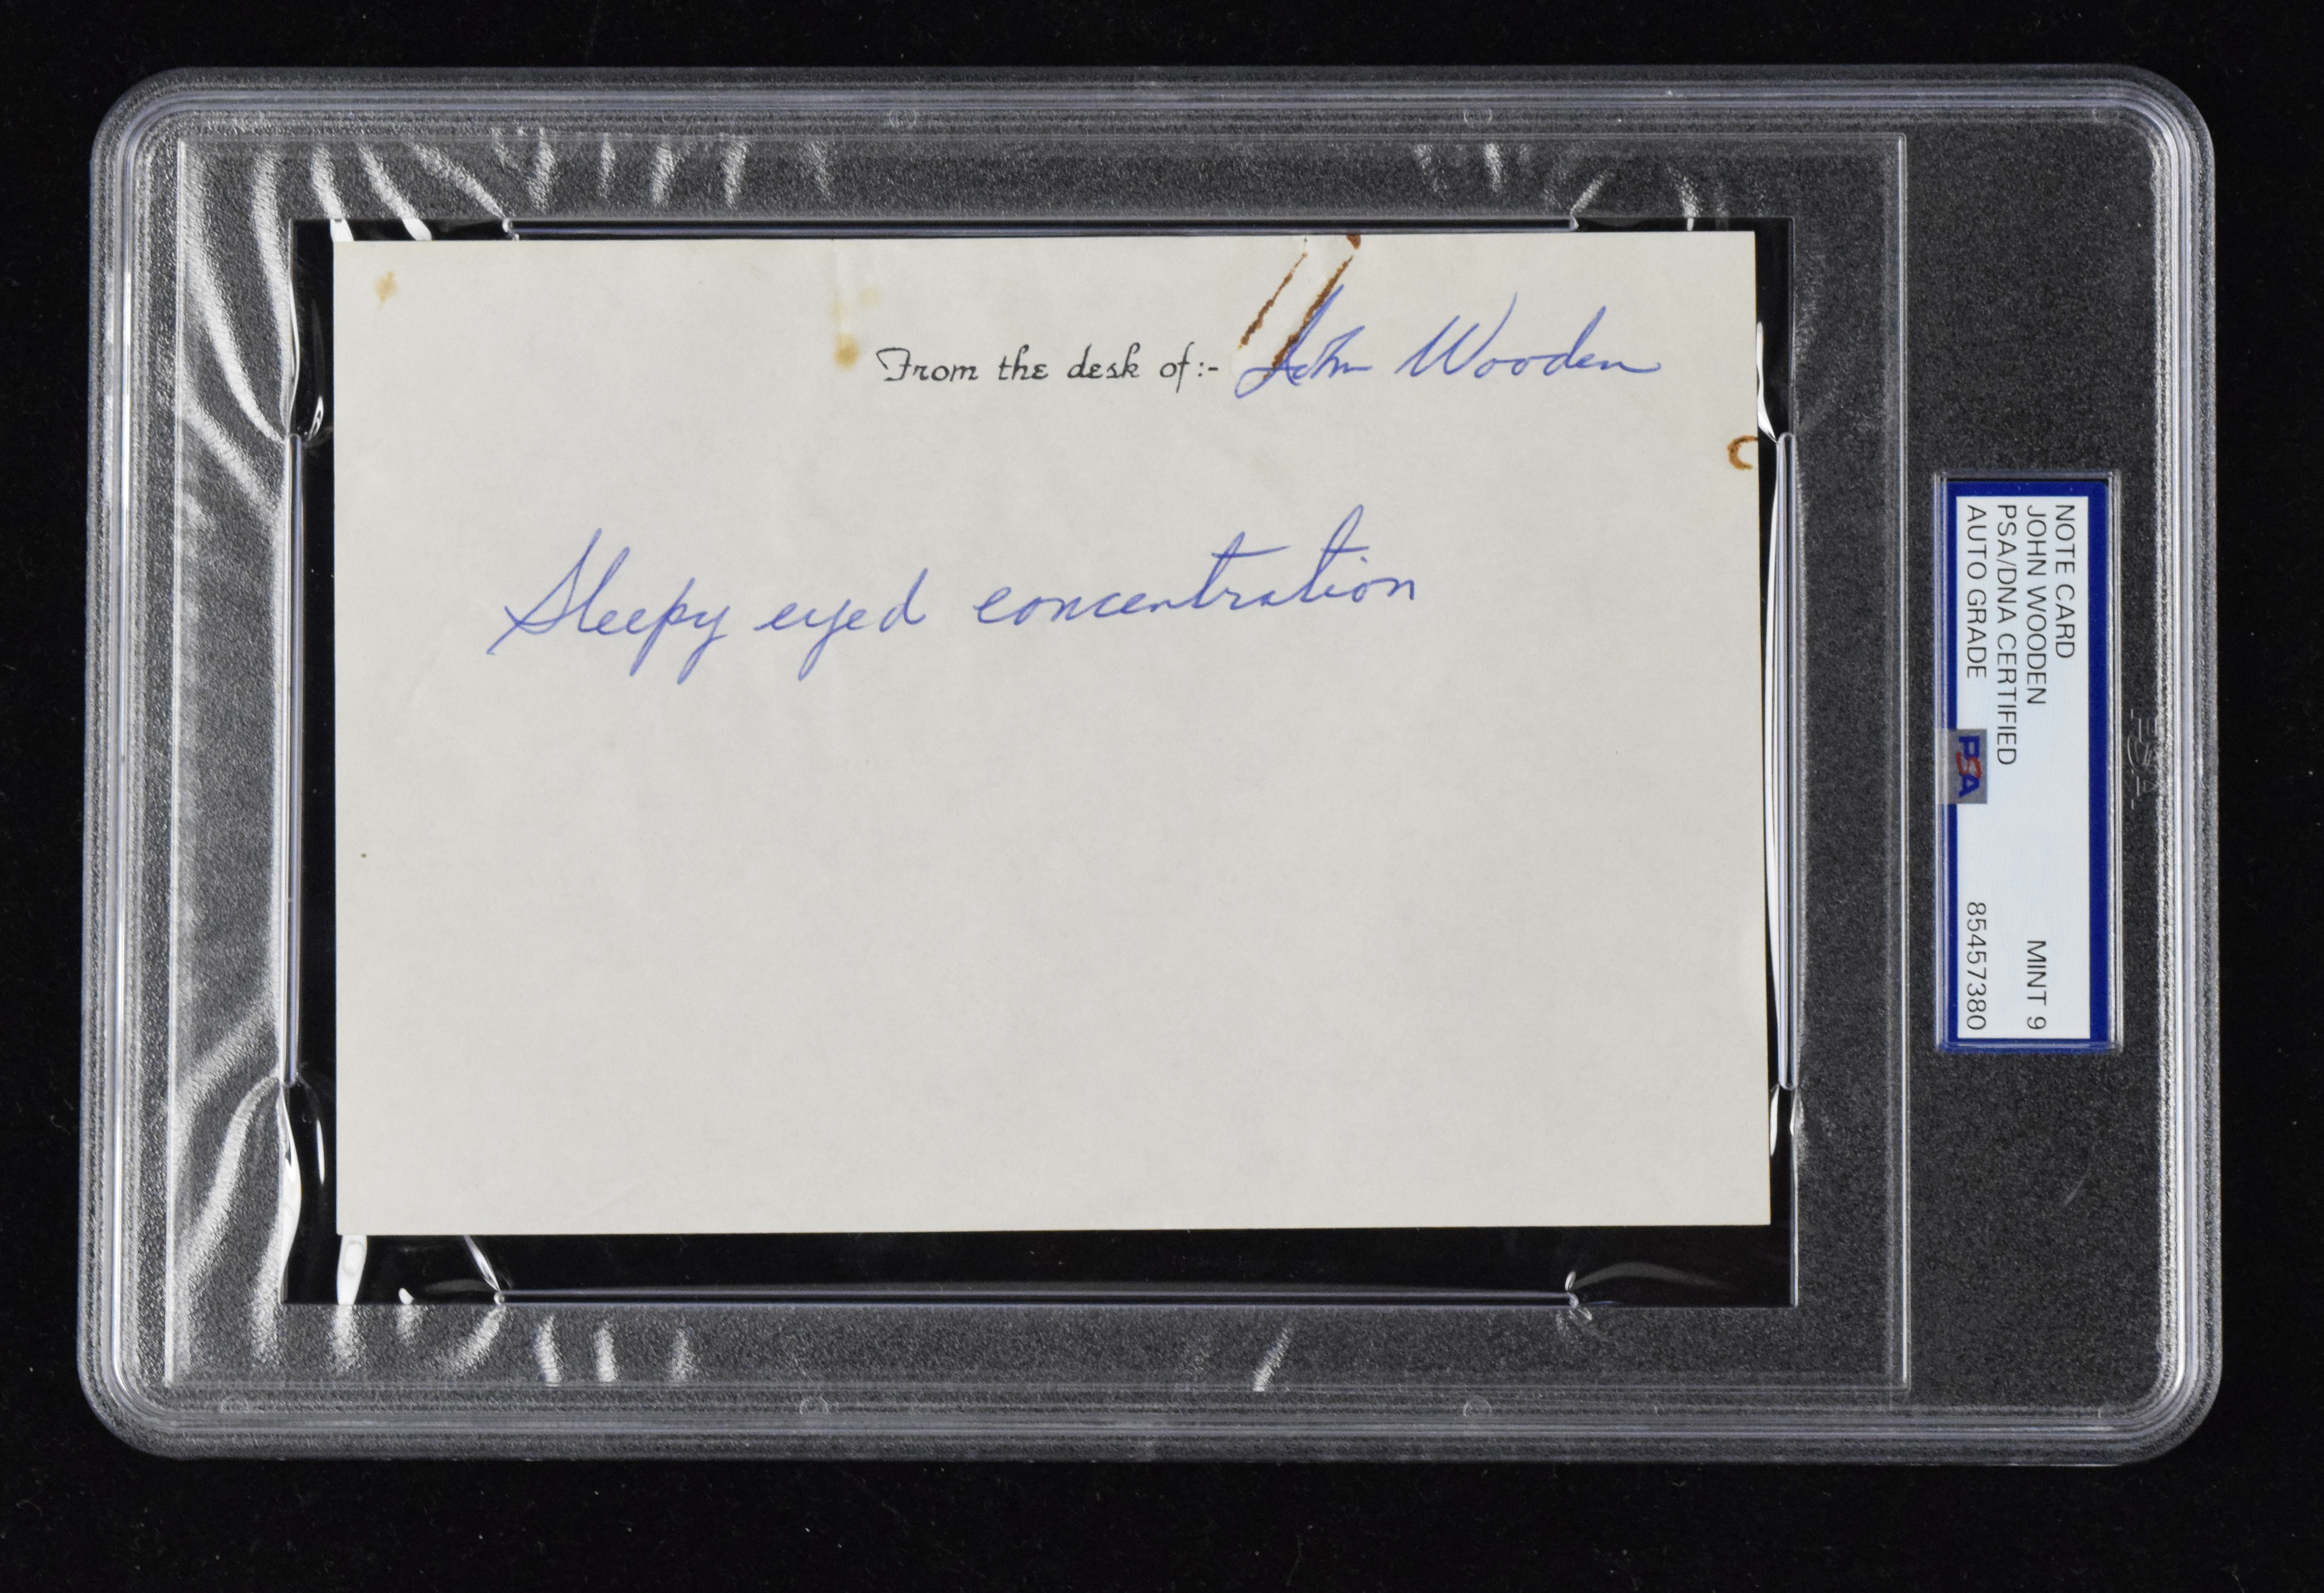 From the desk of:- John Wooden
Sleepy eyed concentration
NOTE CARD
JOHN WOODEN MINT 9
PSA/DNA CERTIFIED
AUTO GRADE 85457380
PSA
PSA